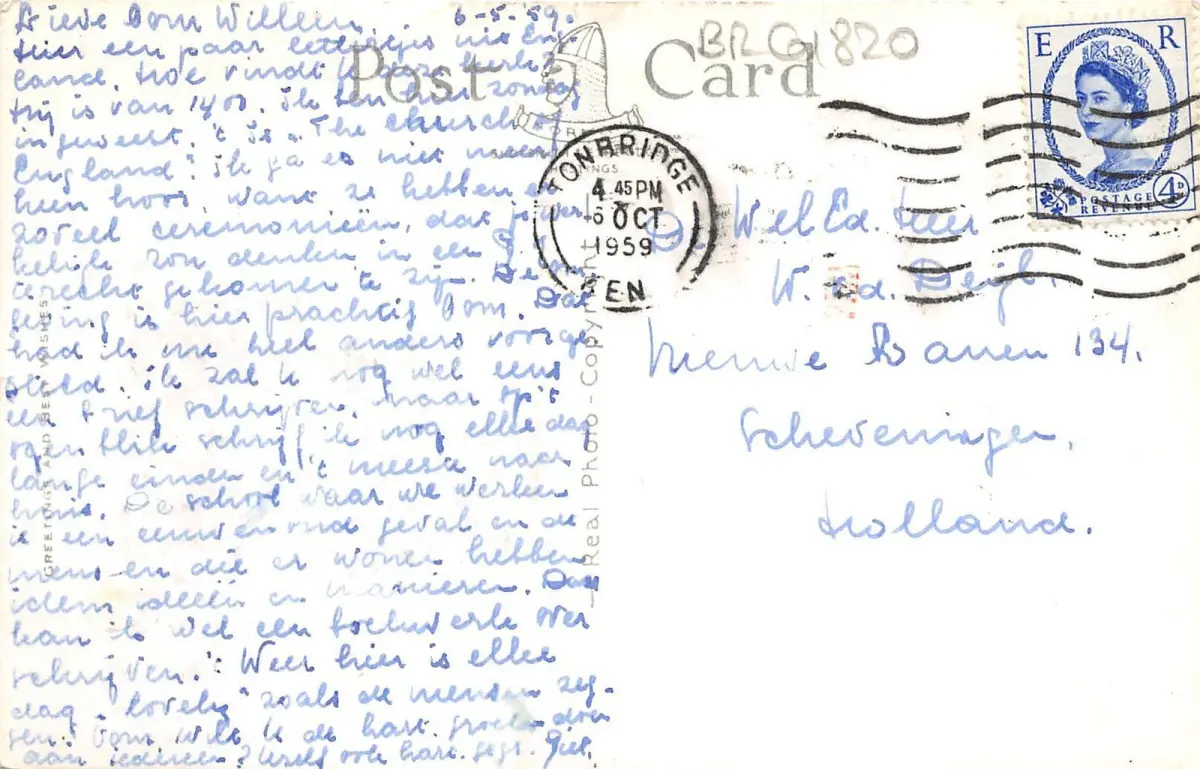 Lieve Oom Willem, 6-5-'59.
Hier een paar lettertjes uit Eng-
land. Hoe vindt U de kerk?
Hij is van 1400. Ik ben hier zondag
in geweest, 't is „The church of
England". Ik ga er niet meer
heen hoor, want ze hebben er
zoveel ceremoniën, dat je wer-
kelijk zou denken in een
terecht gekomen te zijn. De
is hier prachtig Oom. Dat
had ik me heel anders voorge
steld. Ik zal U nog wel eens
een brief schrijven, maar op 't
ogenblik schrijf ik nog elke dag
lange einden en 't meeste naar
huis. De school waar we werken
is een eeuwenoud geval en de
mens-en die er wonen hebben
idem ideeën en manieren. Daar
kan ik wel een boekwerk over
schrijven. 't Weer hier is elke
dag „lovely" zoals de mensen zeg-
gen. Oom wilt U de hart. groeten doen
aan iedereen? Uzelf ook hart. gegr. Piet.
Post Card
BRG1820
GREETINGS AND BEST WISHES
Real Photo - Copyright
TONBRIDGE
4.45 PM
6 OCT
1959
KEN
E R
POSTAGE
REVENUE
4D
De WelEd. Heer
W. v.d. Deijl.
Nieuwe Banen 134.
Scheveningen.
Holland.